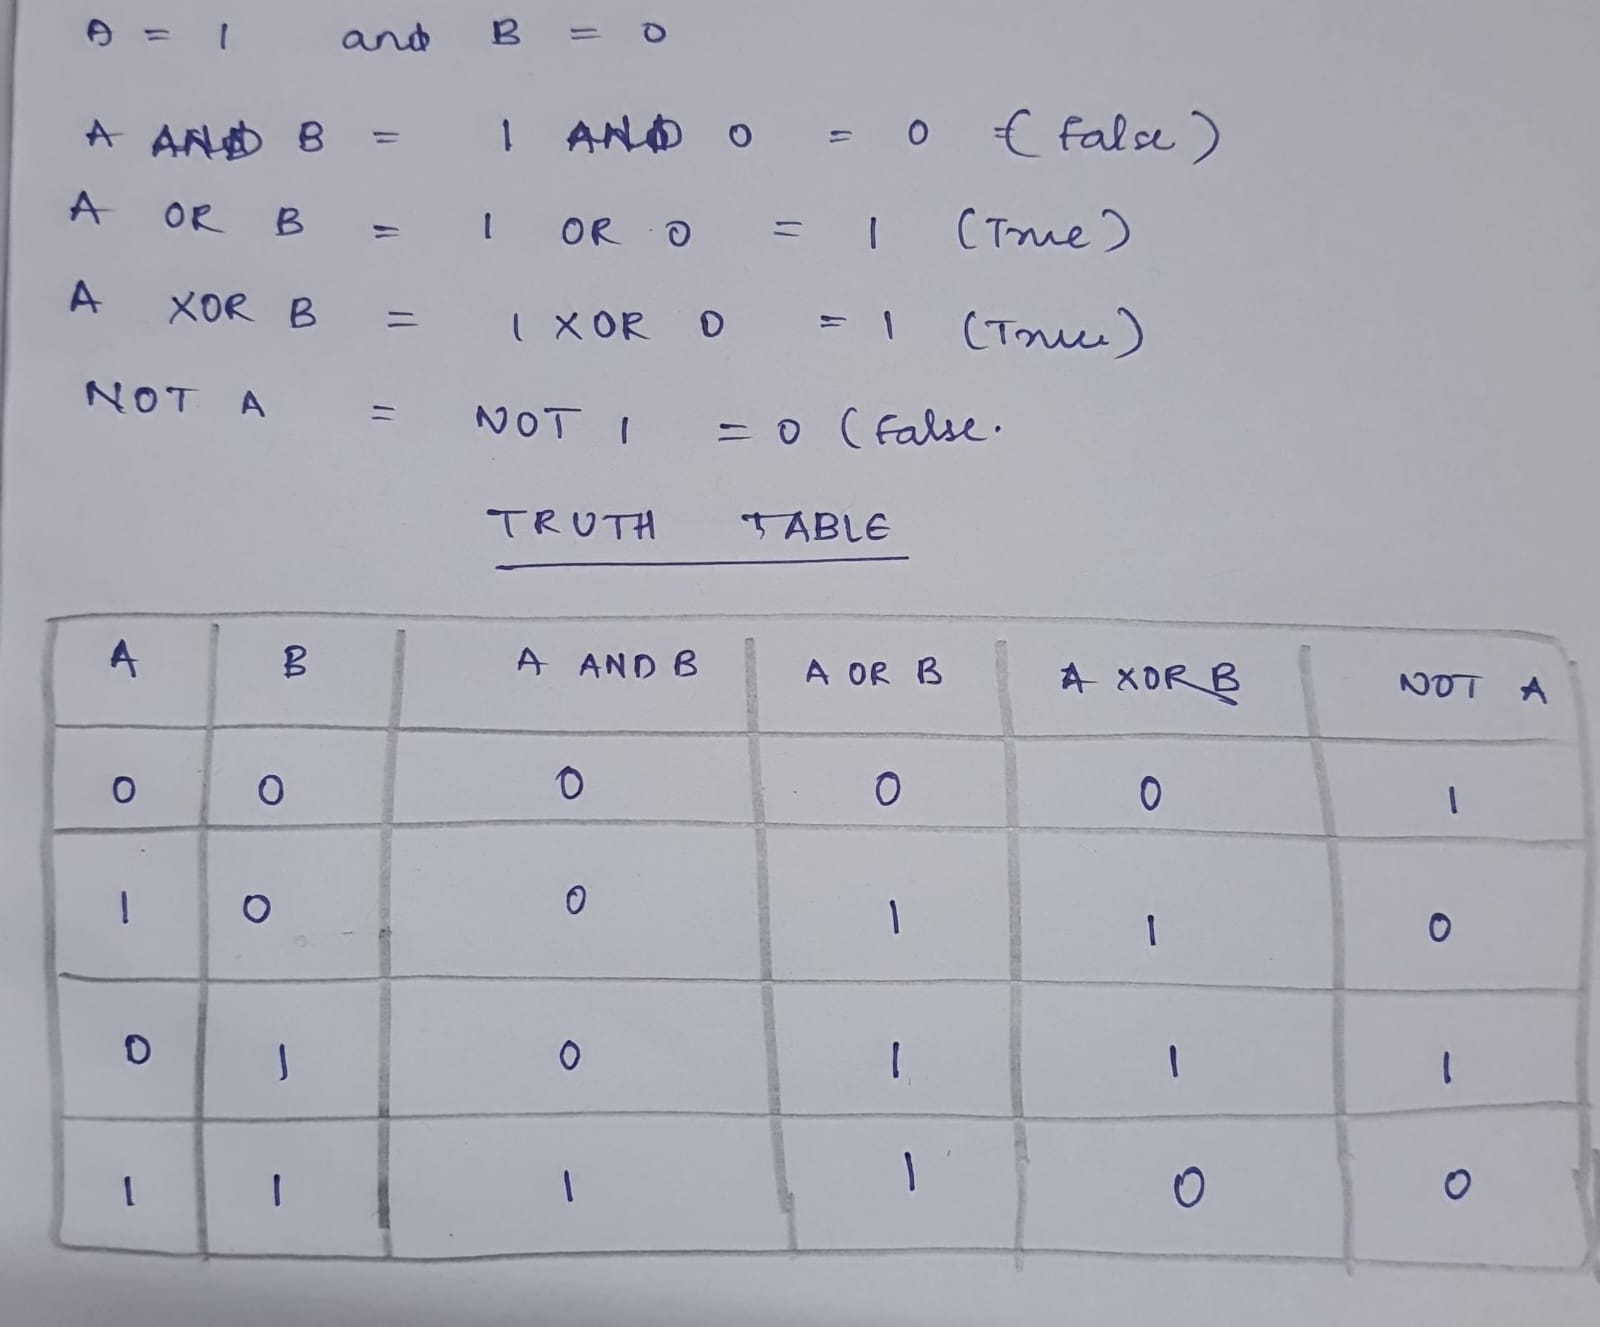 A = 1 and B = 0
A AND B = 1 AND 0 = 0 (False)
A OR B = 1 OR 0 = 1 (True)
A XOR B = 1 XOR 0 = 1 (True)
NOT A = NOT 1 = 0 (False.
TRUTH TABLE
A B A AND B A OR B A XOR B NOT A
0 0 0 0 0 1
1 0 0 1 1 0
0 1 0 1 1 1
1 1 1 1 0 0